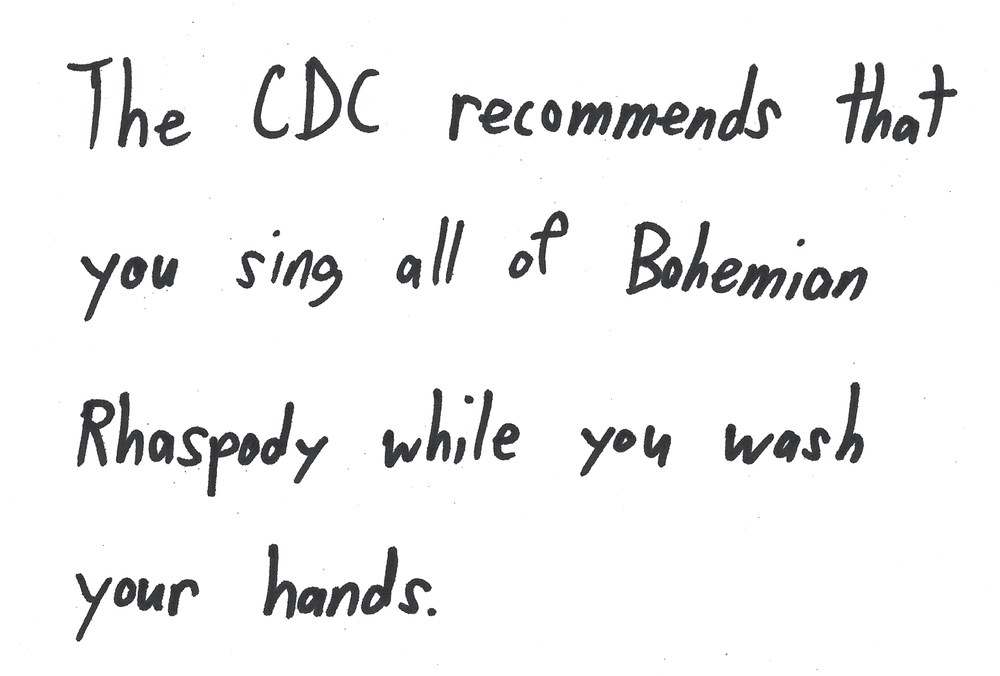 The CDC recommends that
you sing all of Bohemian
Rhaspody while you wash
your hands.